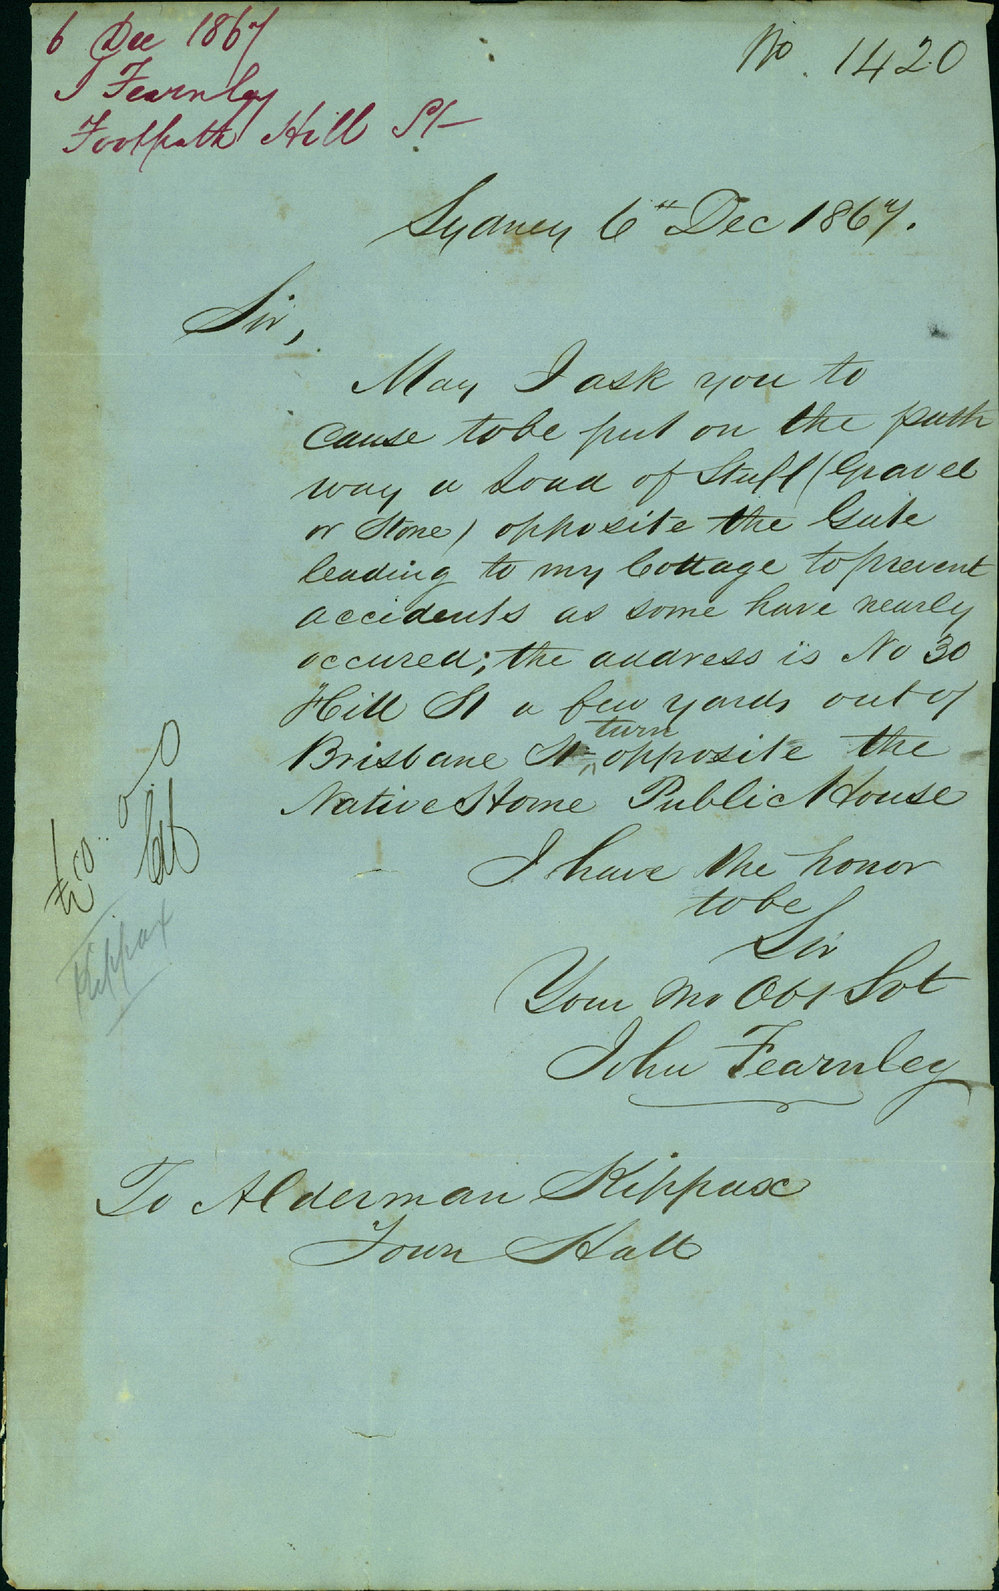 6 Dec 1867
J Fearnley
Footpath Hill St
No. 1420
Sydney 6th Dec 1867.
Sir,
May I ask you to
cause tobe put on the path
way a Load of Stuff (Gravel
or Stone) opposite the Gate
leading to my Cottage to prevent
accidents as some have nearly
occured; the address is No 30
Hill St a few yards out of
Brisbane St turn opposite the
Native Home Public House
I have the honor
to be
Sir
Your Mo Obt Svt
John Fearnley
Kippax
To Alderman Kippax
Town Hall